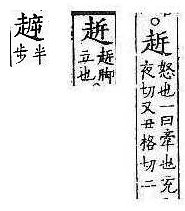 怒也一曰牽也充
夜切又丑格切二
脚
立也
半
步